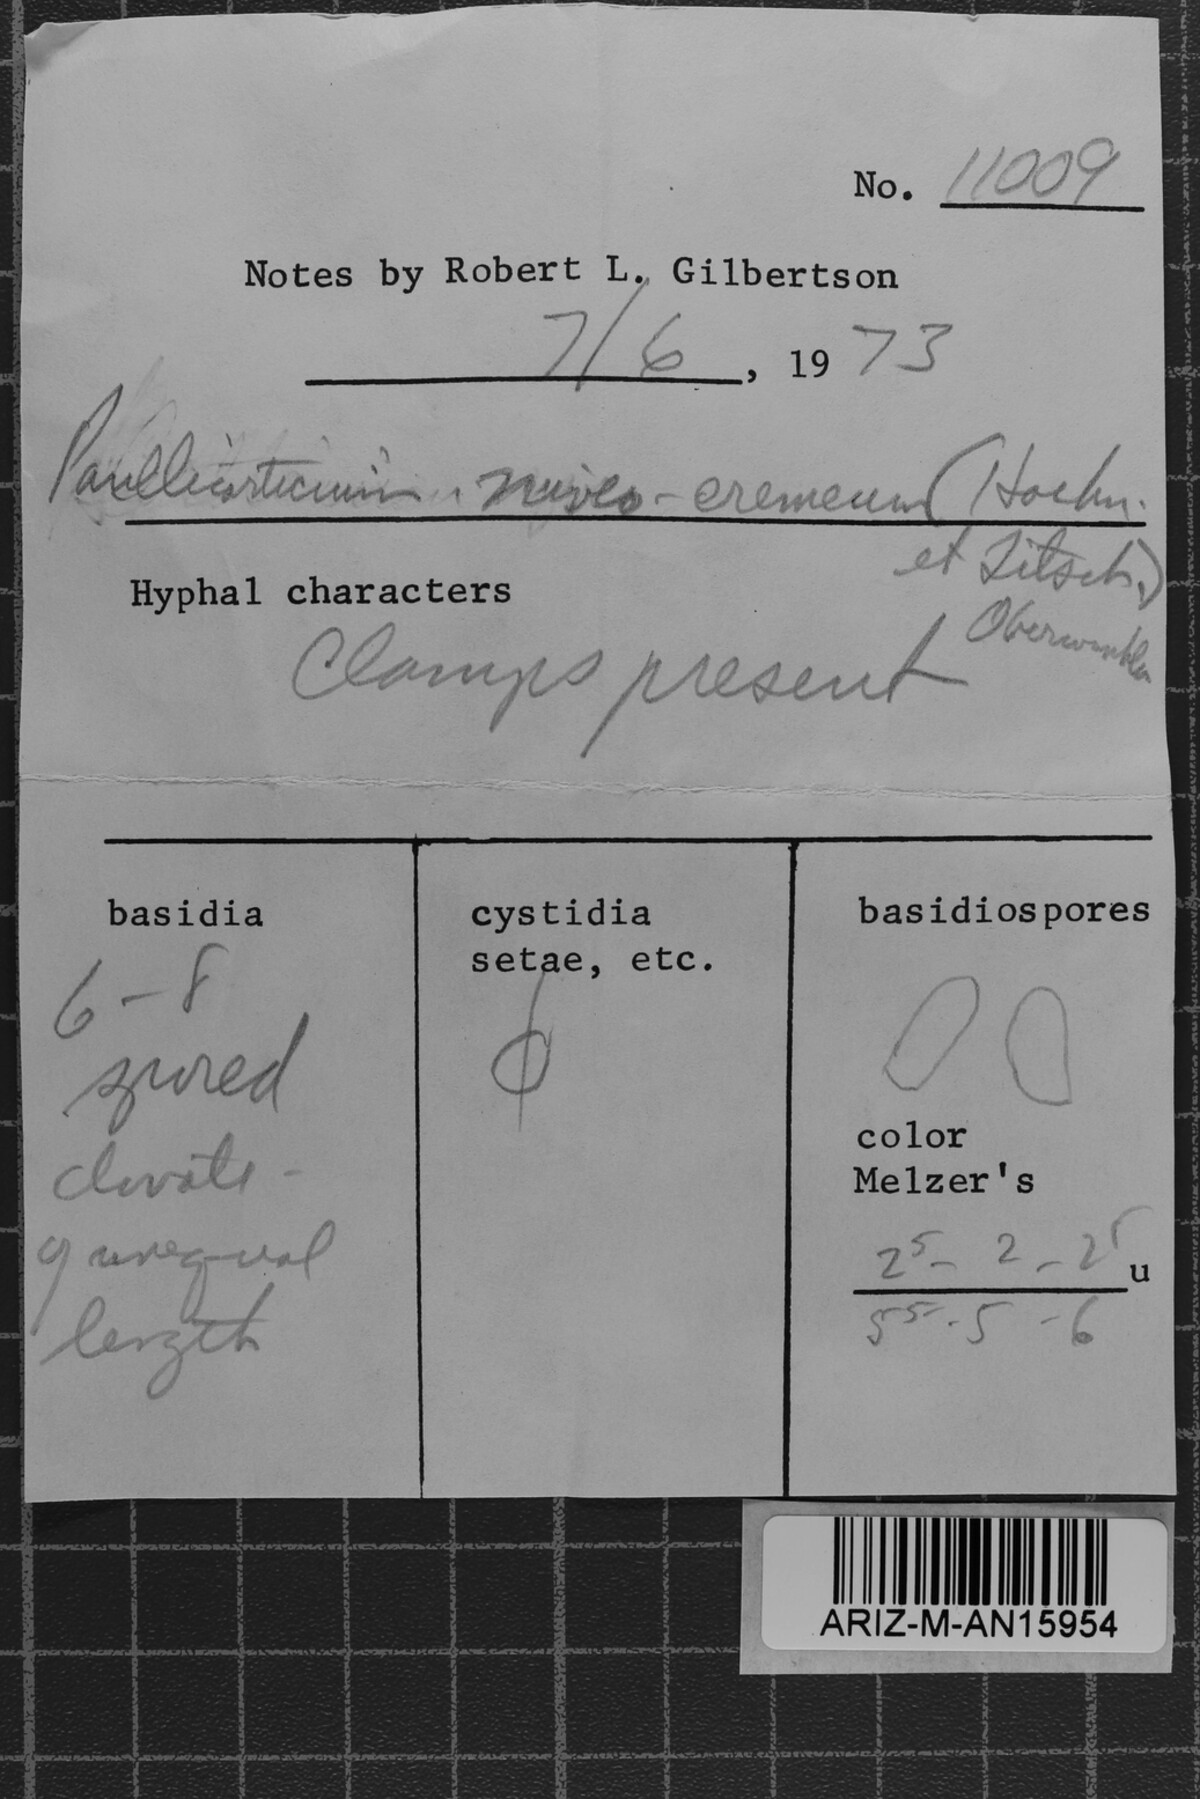 No. 11009
Notes by Robert L. Gilbertson
7/6, 1973
Paullicorticium niveo-cremeum (Hoehn.
et Litsch.)
Oberwinkler
Hyphal characters
Clamps present
basidia
6-8
spored
clavate -
of unequal
length
cystidia
setae, etc.
basidiospores
color
Melzer's
2⁵- 2 - 2⁵ u
5⁵- 5 - 6
ARIZ-M-AN15954